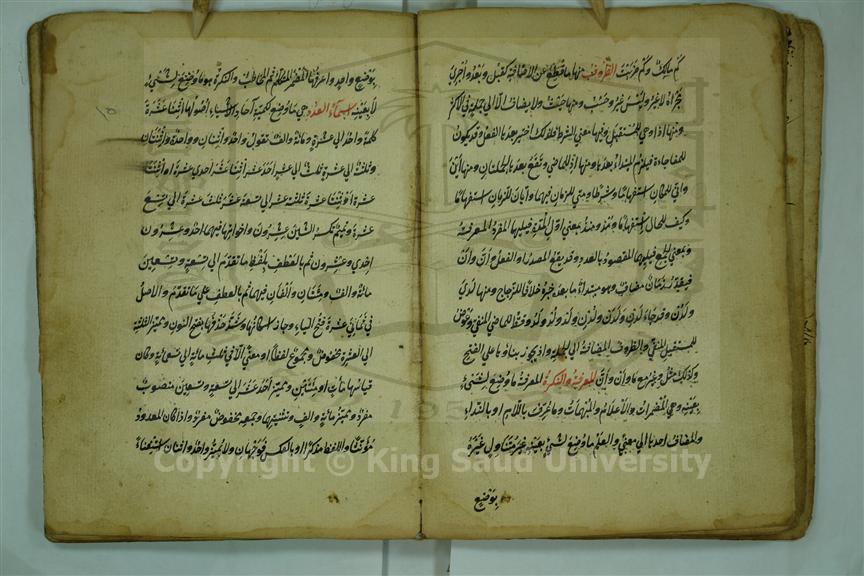 كم مالك وكم ضربت الظروف منها ما قطع عن الاضافة كقبل وبعد واجرى
مجراه لاغير وليس غير وحسب ومنها حيث ولا يضاف الا الى جملة في الاكثر
ومنها اذا وهي للمستقبل وفيها معنى الشرط فلذلك اختير بعدها الفعل وقد يكون
للمفاجاة فيلزم المبتداء بعدها ومنها اذ للماضي وتقع بعدها الجملتان ومنها اين
وانى للمكان استفهاما وشرطا ومتى للزمان فيهما وايان للزمان استفهاما
وكيف للحال استفهاما ومذ ومنذ بمعنى اول المدة فيليهما المفرد المعرفة
وبمعنى الجميع فيليهما المقصود بالعدد وقد يقع المصدر او الفعل او ان وان
فيقدر زمان مضاف وهو مبتداء ما بعده خبره خلافا للزجاج ومنها لدى
ولدن وقد جاء لدن ولدن ولدن ولد ولد ولد وقط للماضي المنفي وعوض
للمستقبل المنفي والظروف المضافة الى الجملة واذ يجوز بناؤها على الفتح
وكذلك مثل وغير مع ما وان وان المعرفة والنكرة المعرفة ما وضع لشيء
بعينه وهي المضمرات والاعلام والمبهمات وما عرفت باللام او بالنداء
والمضاف احدها الى معنى والعلم ما وضع لشيء بعينه غير متناول غيره
بوضع
بوضع واحد واعرفها المضمر المتكلم ثم المخاطب والنكرة ما وضع لشيء
لا بعينه اسماء العدد هي ما وضع لكمية آحاد الاشياء اصولها اثنتا عشرة
كلمة واحد الى عشرة ومائة والف تقول واحد واثنان وواحدة واثنتان
وثلثة الى عشرة ثلث الى عشر احد عشر اثنا عشر احدى عشرة اثنتا
عشرة او ثنتا عشرة ثلثة عشر الى تسعة عشر ثلث عشرة الى تسع
عشرة وتميم تكسر الشين عشرون واخواتها فيهما احد وعشرون
احدى وعشرون ثم بالعطف بلفظ ما تقدم الى تسعة وتسعين
مائة والف ومئتان والفان فيهما ثم بالعطف على ما تقدم والاصل
في ثماني عشرة فتح الياء وجاء اسكانها وشذ حذفها بفتح النون ومميز الثلثة
الى العشرة مخفوض ومجموع لفظا او معنى الا في ثلث مائة الى تسعمائة وكان
قياسها مئات او مئين ومميز احد عشر الى تسعة وتسعين منصوب
مفرد ومميز مائة والف وتثنيتهما وجمعه مخفوض مفرد واذا كان المعدود
مؤنثا واللفظ مذكرا او بالعكس فوجهان ولا يميز واحد واثنان استغناء
Copyright © King Saud University